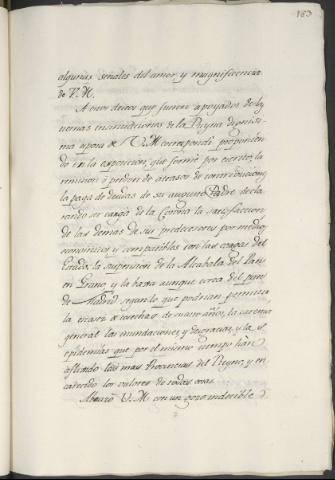 163
algunas señales del amor y magnificencia
de V. M.
A estos deseos que fueron apoyados de las
tiernas insinuaciones de la Reyna dignisi-
ma esposa de V. M. correspondi proponien-
do en la exposicion que formé por escrito, la
remision ó perdon de atrasos de contribuciones,
la paga de deudas de su augusto Padre decla-
rando ser carga de la Corona la satisfaccion
de las demas de sus predecesores por medios
economicos y compatibles con las cargas del
Estado, la supresion de la Alcabala del Pan
en Grano, y la baxa aunque corta del precio
de Madrid segun lo que podrian permitir
la escasez de cosechas de quatro años, la carestia
general las inundaciones, y desgracias, y las
epidemias que por el mismo tiempo han
afligido las mas Provincias del Reyno, y en-
carecido los valores de todas cosas.
Abrazó V. M. con un gozo indecible